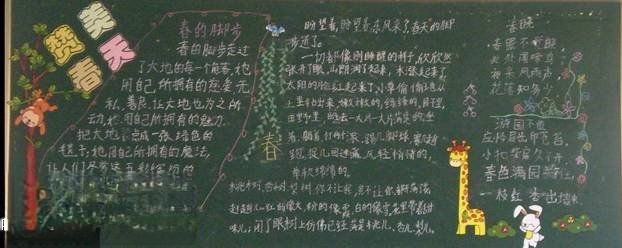 赞美春天
春的脚步
春的脚步走过
了大地的每一个角落,他
用自己所拥有的
私、善良,让大地也为之所
动,他用自己所拥有的魅力
把大地 成一张绿色的
毯子,他用自己所拥有的魔法,
让人们
盼望着,盼望着,东风来了,春天的脚
步近了。
一切都像刚睡醒的样子,欣欣然
张开了眼。山朗润了起来,水涨起来了,
太阳的脸红起来了。小草偷偷地从
土里钻出来,嫩嫩的,绿绿的。园子里,
田野里,瞧去一大片一大片满是的。坐
着,躺着,打两个滚,踢几脚球,赛几趟
跑,捉几回迷藏。风轻悄悄的,
草软绵绵的。
桃树、杏树、梨树,你不让我,我不让你,都开满了花
赶趟儿。红的像火,粉的像霞,白的像雪。花里带着甜
味儿;闭了眼,树上仿佛已经满是桃儿、杏儿、梨儿。
春
春晓
春眠不觉晓
处处闻啼鸟
夜来风雨声
花落知多少
游园不值
应怜屐齿印苍苔,
小扣柴扉久不开。
春色满园关不住,
一枝红杏出墙来